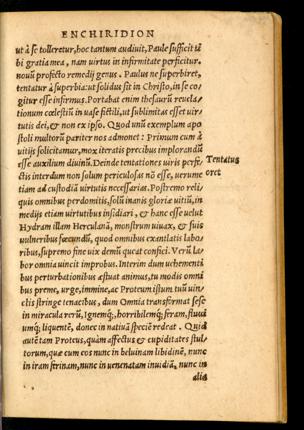 ENCHIRIDION
ut à se tolleretur, hoc tantum audiuit, Paule sufficit tibi
bi gratia mea, nam uirtus in infirmitate perficitur.
nouũ profecto remedij genus. Paulus ne superbiret,
tentatur à superbia: ut solidus sit in Christo, in se co-
gitur esse infirmus. Portabat enim thesaurũ reuela-
tionum cœlestiũ in uase fictili, ut sublimitas esset uir-
tutis dei, & non ex ipso. Quod unũ exemplum apo
stoli multorũ pariter nos admonet: Primum cum à
uitijs solicitamur, mox iteratis precibus implorandũ
esse auxilium diuinũ. Deinde tentationes uiris perfe-
ctis interdum non solum periculosas nõ esse, uerume
tiam ad custodiã uirtutis necessarias. Postremo reli-
quis omnibus perdomitis, solũ inanis gloriæ uitiũ, in
medijs etiam uirtutibus insidiari, & hanc esse uelut
Hydram illam Herculanã, monstrum uiuax, & suis
uulneribus fœcundũ, quod omnibus exantlatis labo-
ribus, supremo fine uix demũ queat confici. Verũ la-
bor omnia uincit improbus. Interim dum uehementi
bus perturbationibus æstuat animus, tu modis omni
bus preme, urge, immine, ac Proteum istum tuũ uin-
clis stringe tenacibus, dum Omnia transformat sese
in miracula rerũ, Ignemq́;, horribilemq́; feram, fluui
umq́; liquentẽ, donec in natiuã speciẽ redeat. Quid
autẽ tam Proteus, quàm affectus & cupiditates stul-
torum, quæ cum eos nunc in beluinam libidinẽ, nunc
in iram ferinam, nunc in uenenatam inuidiã, nunc in
alia
Tentatus
oret